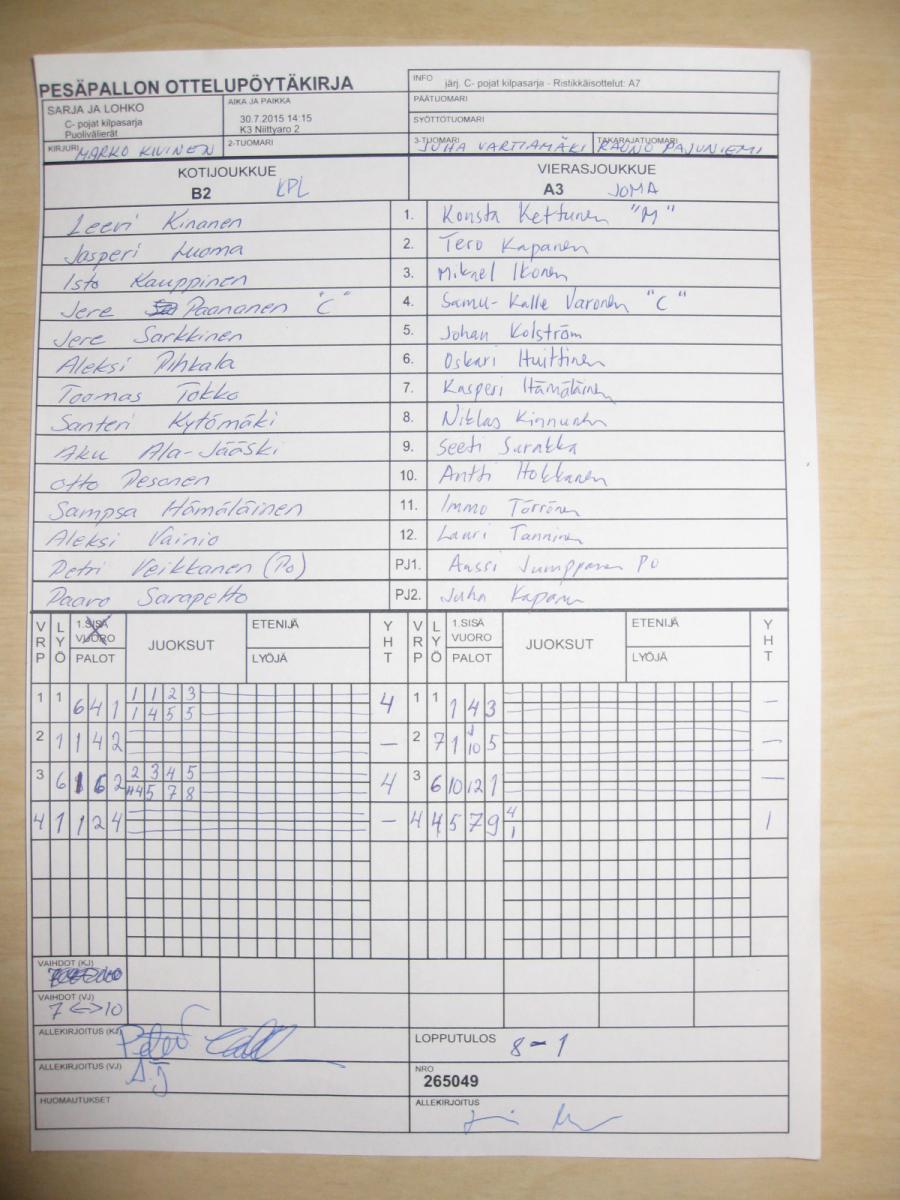 PESÄPALLON OTTELUPÖYTÄKIRJA
INFO järj. C- pojat kilpasarja - Ristikkäisottelut: A7
SARJA JA LOHKO
C- pojat kilpasarja
Puolivälierät
AIKA JA PAIKKA
30.7.2015 14:15
K3 Niittyaro 2
PÄÄTUOMARI
SYÖTTÖTUOMARI
KIRJURI MARKO KIVINEN
2-TUOMARI
3-TUOMARI JUHA VARTIAMÄKI
TAKARAJATUOMARI RAUNO PAJUNIEMI
KOTIJOUKKUE
B2 KPL
VIERASJOUKKUE
A3 JOMA
Leevi Kinanen 1. Konsta Kettunen "M"
Jasperi Luoma 2. Tero Kapanen
Isto Kauppinen 3. Mikael Ikonen
Jere Paananen "C" 4. Samu-Kalle Varonen "C"
Jere Sarkkinen 5. Johan Kolström
Aleksi Pihkala 6. Oskari Huittinen
Toomas Tokko 7. Kasperi Hämäläinen
Santeri Kytömäki 8. Niklas Kinnunen
Aku Ala-Jääski 9. Seeti Surakka
Otto Pesonen 10. Antti Hokkanen
Sampsa Hämäläinen 11. Immo Törrönen
Aleksi Vainio 12. Lauri Tanninen
Petri Veikkanen (Po) PJ1. Anssi Jumppanen Po
Paavo Sarapelto PJ2. Juha Kapanen
VRP LYÖ 1.SISÄ VUORO PALOT JUOKSUT ETENIJÄ LYÖJÄ YHT VRP LYÖ 1.SISÄ VUORO PALOT JUOKSUT ETENIJÄ LYÖJÄ YHT
1 1 6 4 1 1 1 2 3 4 1 1 1 4 3 –
1 4 5 5
2 1 1 4 2 – 2 7 1 10 5 –
3 6 1 6 2 2 3 4 5 4 3 6 10 12 1 –
4 5 7 8
4 1 1 2 4 – 4 4 5 7 9 4 1
1
VAIHDOT (KJ)
VAIHDOT (VJ)
7 <-> 10
ALLEKIRJOITUS (KJ)
LOPPUTULOS 8-1
ALLEKIRJOITUS (VJ) A.J
NRO
265049
HUOMAUTUKSET
ALLEKIRJOITUS